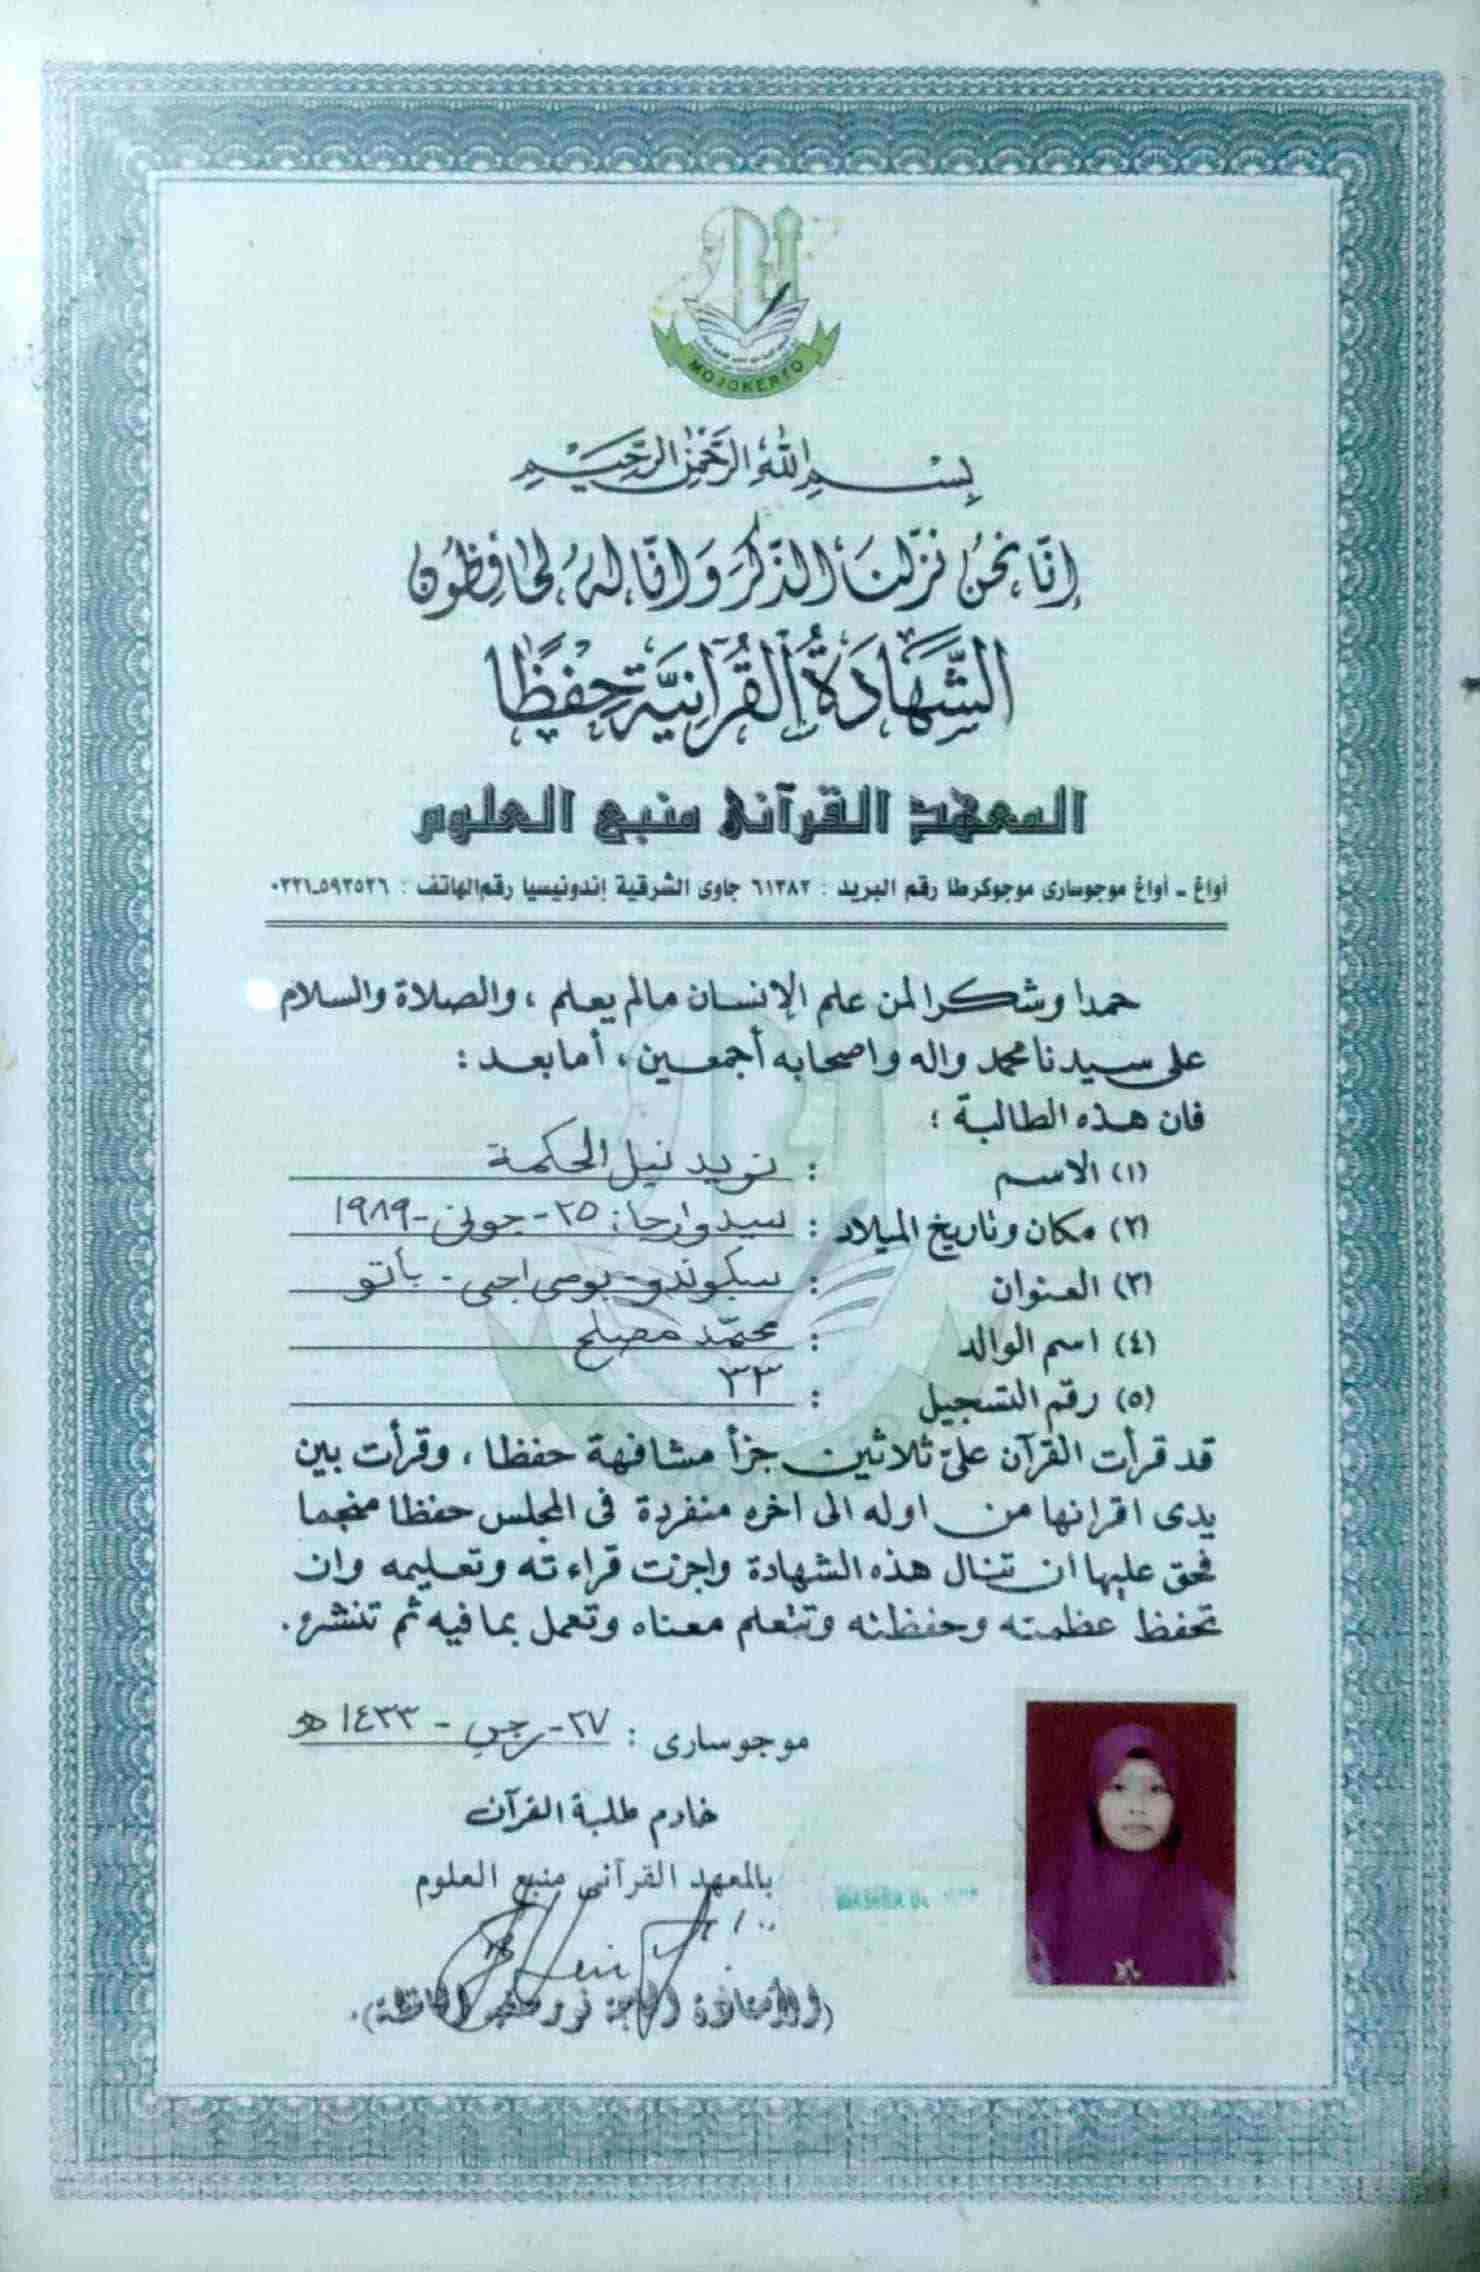 MOJOKERTO
بِسْمِ اللهِ الرَّحْمٰنِ الرَّحِيْمِ
إِنَّا نَحْنُ نَزَّلْنَا الذِّكْرَ وَاِنَّا لَهُ لَحَافِظُوْن
الشَّهَادَةُ الْقُرْآنِيَّة حِفْظًا
المعهد القرآنى منبع العلوم
أواڠ - أواڠ موجوسارى موجوكرطا رقم البريد : ٦١٣٨٢ جاوى الشرقية إندونيسيا رقم الهاتف : ٠٣٢١-٥٩٣٥٢٦
حمدا وشكرا لمن علم الإنسان مالم يعلم ، والصلاة والسلام
على سيدنا محمد واله واصحابه أجمعين ، أما بعد :
فان هذه الطالبة :
(١) الاسم : نويد نيل الحكمة
(٢) مكان وتاريخ الميلاد : سيدوارجا: ٢٥ - جونى - ١٩٨٩
(٣) العنوان : سيكوندو - بومى اجى - باتو
(٤) اسم الوالد : محمّد مصلح
(٥) رقم التسجيل : ٣٣
قد قرأت القرآن علىّ ثلاثين جزأ مشافهة حفظا ، وقرأت بين
يدى اقرانها من اوله الى اخره منفردة فى المجلس حفظا منجما
فحق عليها ان تنال هذه الشهادة واجزت قراءته وتعليمه وان
تحفظ عظمته وحفظته وتتعلم معناه وتعمل بما فيه ثم تنشره.
موجوسارى : ٢٧ - رجب - ١٤٣٣ ه
خادم طلبة القرآن
بالمعهد القرآنى منبع العلوم
(الأستاذة الحاجة الحافظة).